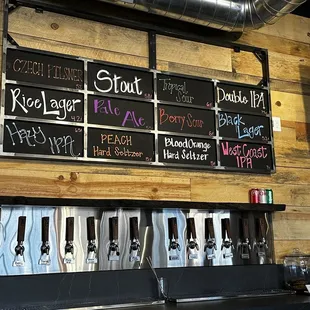 Czech Pilsner
Stout
Tropical
Sour
Double IPA
Rice Lager
Pale Ale
Berry Sour
Black
Lager
Hazy IPA
PEACH
Hard Seltzer
Blood Orange
Hard Seltzer
West Coast
IPA